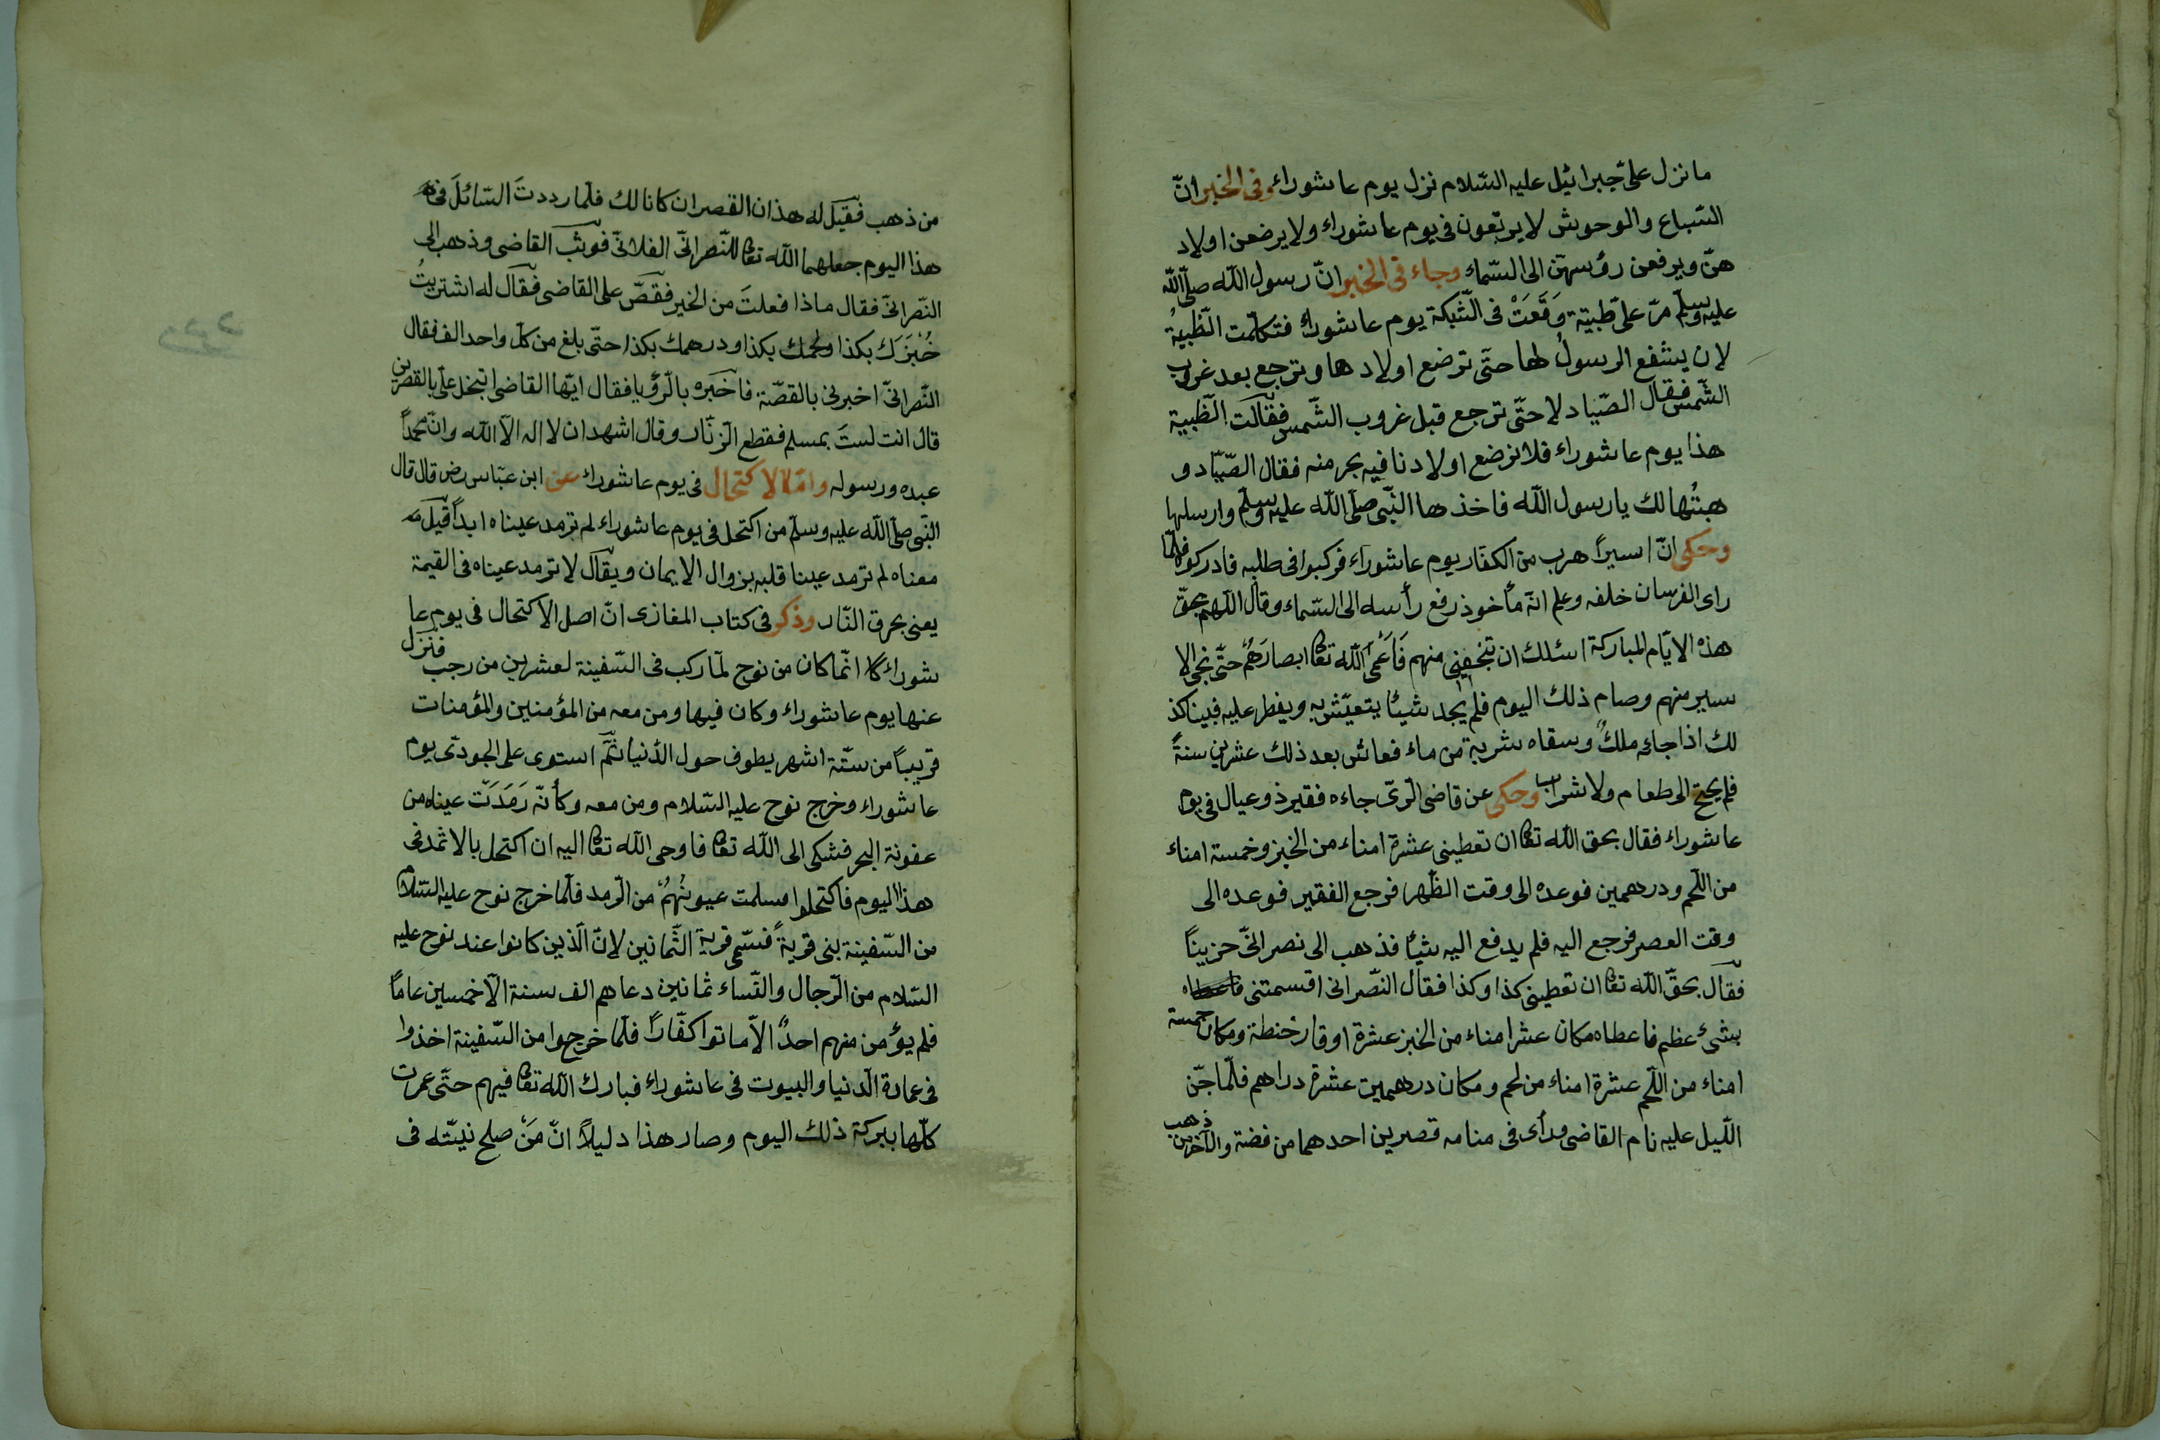 ما نزل علىّ جبرائيل عليه السّلام نزل يوم عاشوراء وفى الخبر انّ
السّباع والوحوش لا يرتعون فى يوم عاشوراء ولا يرضعن اولاد
هنّ ويرفعن رؤسهنّ الى السّماء وجاء فى الخبر انّ رسول الله صلّى الله
عليه وسلّم مرّ على ظبية وَقَعَتْ فى الشّبكة يوم عاشوراء فتكلّمت الظّبيةُ
لان يشفع الرسولُ لها حتّى ترضع اولادها وترجع بعد غروب
الشّمس فقال الصّياد لا حتّى ترجع قبل غروب الشّمس فقالت الظّبية
هذا يوم عاشوراء فلا نرضع اولادنا فيه بحرمته فقال الصّيّاد و
هبتُها لك يا رسول الله فاخذها النّبى صلّى الله عليه وسلّم وارسلها
وحكى انّ اسيرًا هرب من الكفّار يوم عاشوراء فركبوا فى طلبه فادركوه فلمّا
راى الفرسان خلفه وعلم انّه مأخوذ رفع رأسه الى السّماء وقال اللّهمّ بحقّ
هذه الايّام المباركة اسئلك ان تنجينى منهم فَاَعْمَى الله تعالى ابصارَهُمْ حتّى نجى الا
سير منهم وصام ذلك اليوم فلم يجد شيئًا يتعيّش به ويفطر عليه فبينا كذ
لك اذا جاءه ملكٌ وسقاه شربة من ماء فعاش بعد ذلك عشرين سنةً
فلم يحتج الى طعام ولا شراب وحكى عن قاضى الرّى جاءه فقير ذو عيال فى يوم
عاشوراء فقال بحق الله تعالى ان تعطينى عشرة امناء من الخبز وخمسة امناء
من اللّحم ودرهمين فوعده الى وقت الظّهر فرجع الفقير فوعده الى
وقت العصر فرجع اليه فلم يدفع اليه شيئًا فذهب الى نصرانىّ حزينًا
فقال بحقّ الله تعالى ان تعطينى كذا وكذا فقال النّصرانى اقسمتنى
بشئ عظيم فاعطاه مكان عشر امناء من الخبز عشرة اوقار حنطة ومكان خمسة
امناء من اللّحم عشرة امناء من لحم ومكان درهمين عشرة دراهم فلمّا جنّ
اللّيل عليه نام القاضى ورأى فى منامه قصرين احدهما من فضة والآخر من ذهب
من ذهب فقيل له هذان القصران كانا لك فلمّا رددتَ السّائلَ فى
هذا اليوم جعلهما الله تعالى للنّصرانىّ الفلانىّ فوثب القاضى وذهب الى
النّصرانىّ فقال ماذا فعلتَ من الخير فقصّ على القاضى فقال له اشتريتُ
خُبْزَكَ بكذا ولحمك بكذا ودرهمك بكذا حتّى بلغ من كلّ واحد الف فقال
النّصرانىّ اخبرنى بالقصّة فاخبره بالرّؤيا فقال ايّها القاضى اتبخل علىّ بالقصرين
قال انت لستَ بمسلم فقطع الزنّار وقال اشهد ان لا اله الّا الله وانّ محمّدًا
عبده ورسوله وامّا الاكتحال فى يوم عاشوراء عن ابن عبّاس رض قال قال
النّبى صلّى الله عليه وسلّم من اكتحل فى يوم عاشوراء لم ترمد عيناه ابدًا قيل
معناه لم ترمد عينا قلبه بزوال الايمان ويقال لا ترمد عيناه فى القيمة
يعنى بحرق النّار وذكر فى كتاب المغازى انّ اصل الاكتحال فى يوم عا
شوراء انّما كان من نوح لمّا ركب فى السّفينة لعشرين من رجب فنزل
عنها يوم عاشوراء وكان فيها ومن معه من المؤمنين والمؤمنات
قريبًا من ستّة اشهر يطوف حول الدّنيا ثمّ استوى على الجودىّ يوم
عاشوراء وخرج نوح عليه السّلام ومن معه وكأنّه رَمَدَتْ عيناه من
عفونة البحر فشكى الى الله تعالى فاوحى الله تعالى اليه ان اكتحل بالاثمد فى
هذا اليوم فاكتحلوا سلمت عيونُهُمْ من الرّمد فلمّا خرج نوح عليه السّلام
من السّفينة بنى قريةً فسمّى قرية الثّمانين لانّ الّذين كانوا عند نوح عليه
السّلام من الرّجال والنّساء ثمانين دعاهم الف سنة الّا خمسين عامًا
فلم يؤمن منهم احدٌ الّا ماتوا كفّارًا فلمّا خرجوا من السّفينة اخذوا
فى عمارة الدّنيا والبيوت فى عاشوراء فبارك الله تعالى فيهم حتّى عمرت
كلّها ببركة ذلك اليوم وصار هذا دليلاً انّ مَنْ صلح نيّته فى